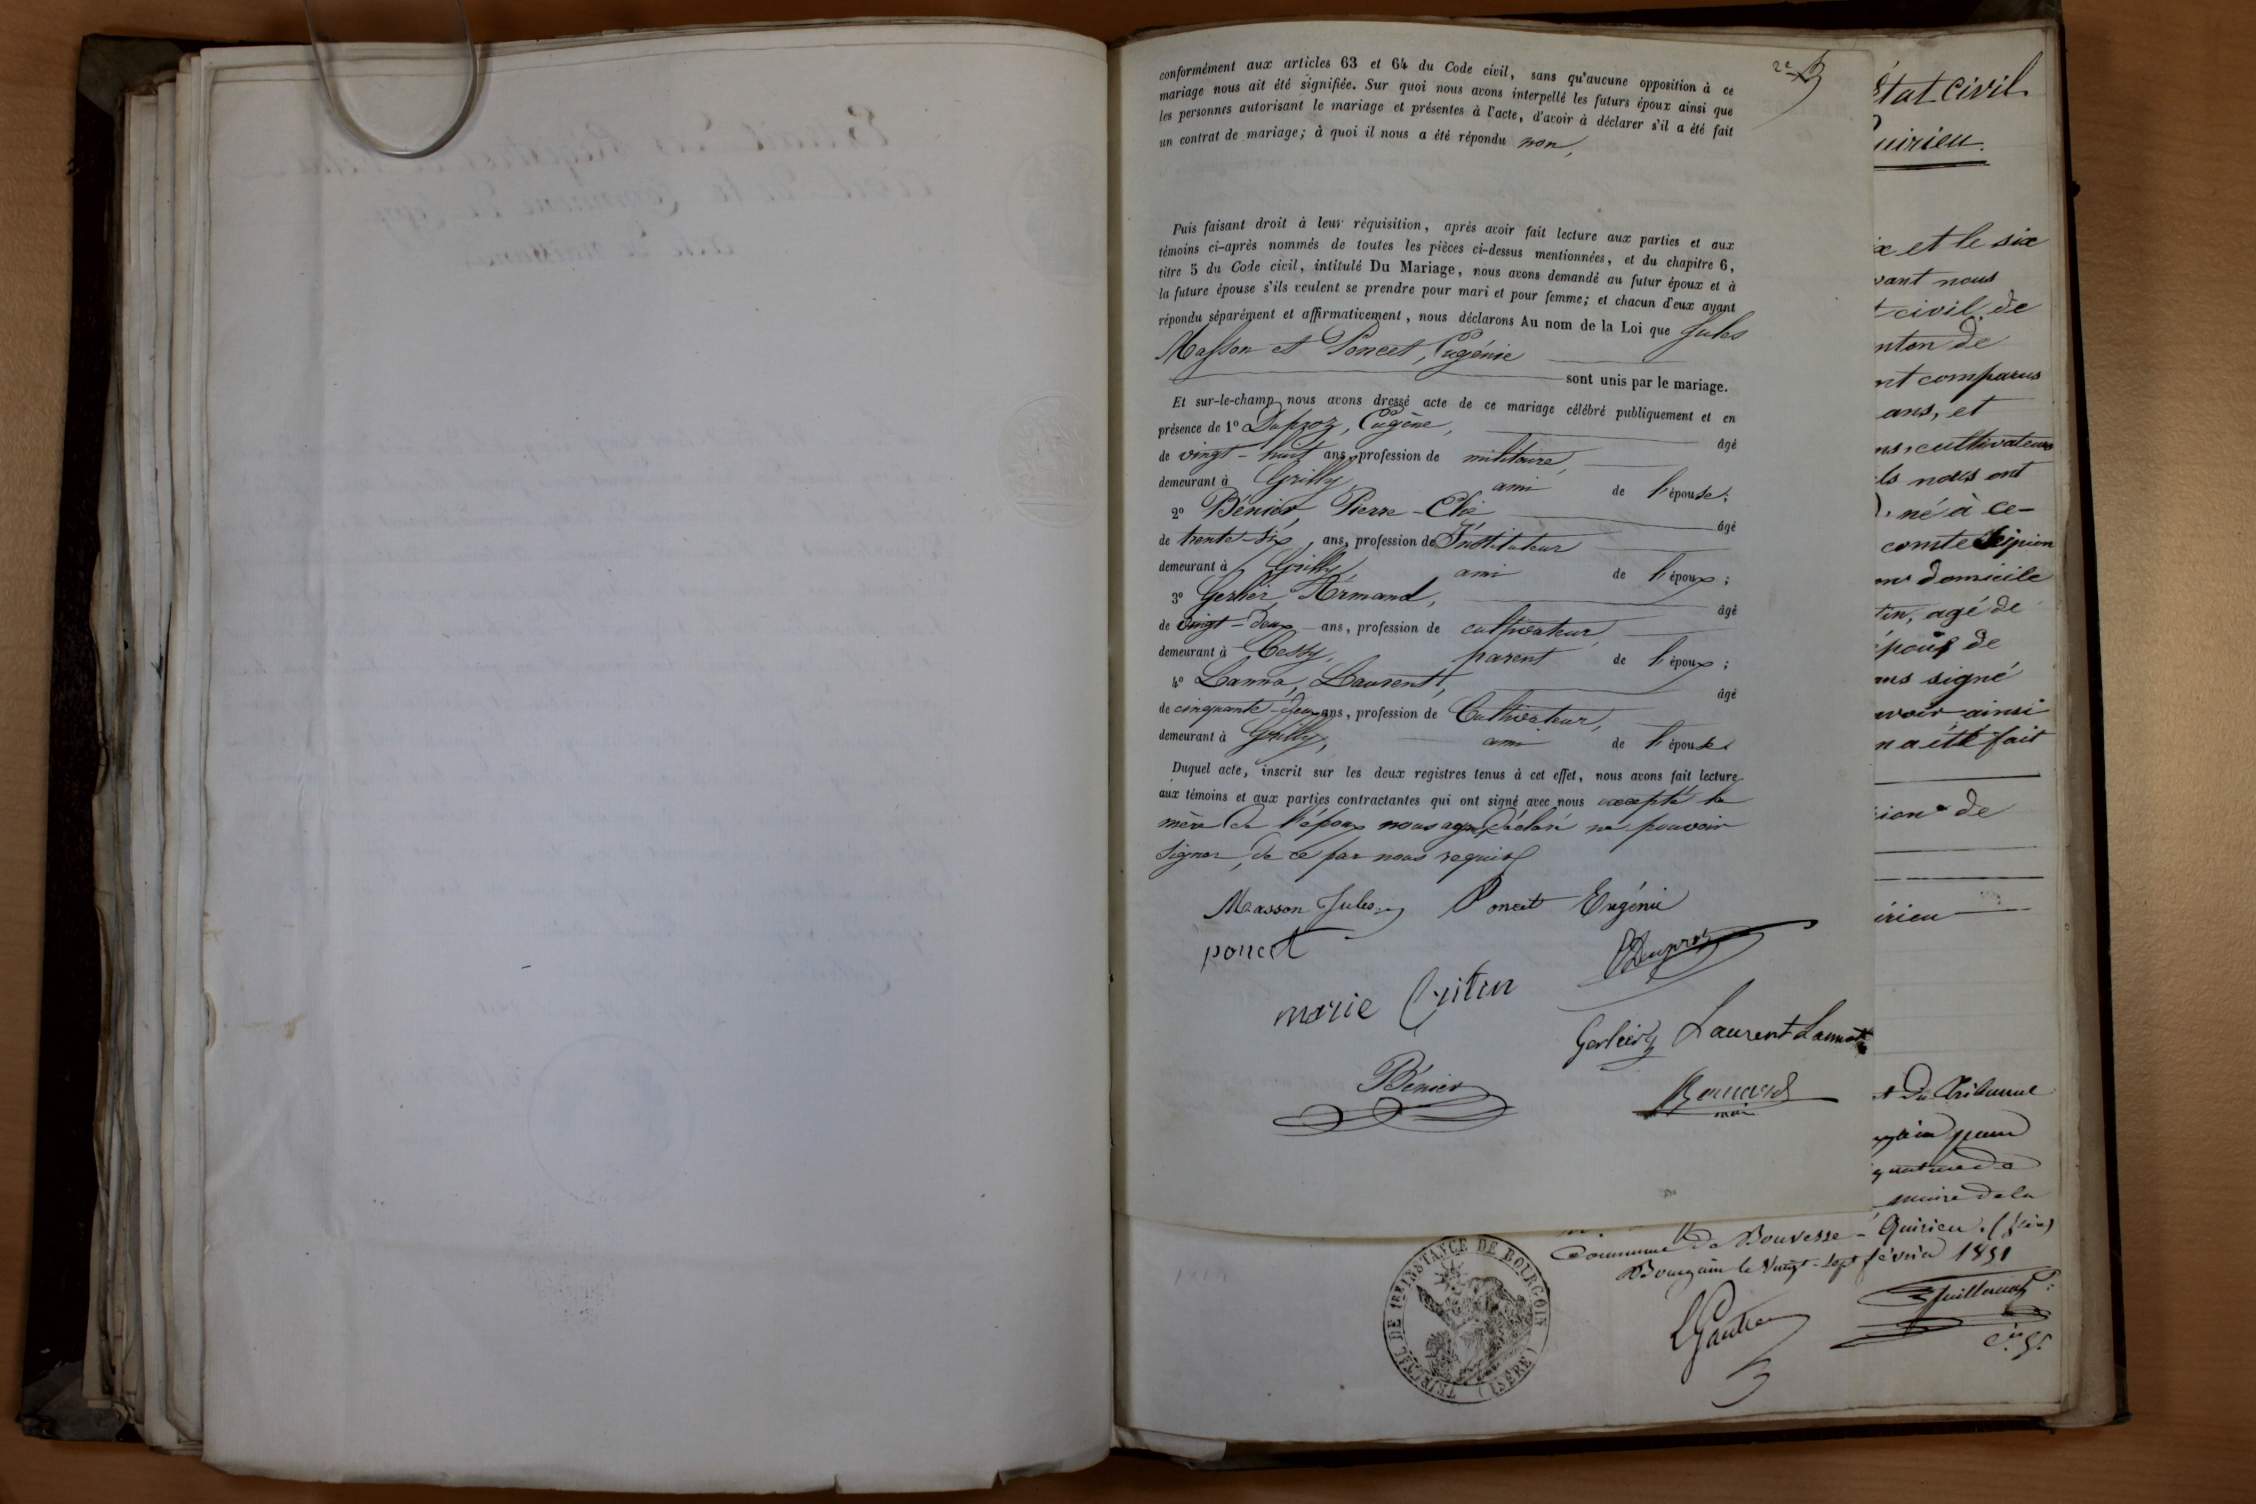 2e
conformément aux articles 63 et 64 du Code civil, sans qu'aucune opposition à ce
mariage nous ait été signifiée. Sur quoi nous avons interpellé les futurs époux ainsi que
les personnes autorisant le mariage et présentes à l'acte, d'avoir à déclarer s'il a été fait
un contrat de mariage; à quoi il nous a été répondu non,
Puis faisant droit à leur réquisition, après avoir fait lecture aux parties et aux
témoins ci-après nommés de toutes les pièces ci-dessus mentionnées, et du chapitre 6,
titre 5 du Code civil, intitulé Du Mariage, nous avons demandé au futur époux et à
la future épouse s'ils veulent se prendre pour mari et pour femme; et chacun d'eux ayant
répondu séparément et affirmativement, nous déclarons Au nom de la Loi que Jules
Masson et Poncet, Eugénie
sont unis par le mariage.
Et sur-le-champ nous avons dressé acte de ce mariage célébré publiquement et en
présence de 1° Duproz, Eugène, âgé
de vingt-huit ans, profession de militaire,
demeurant à Grilly, ami de l'épouse;
2° Bénier Pierre-Elie âgé
de trente-six, ans, profession de Instituteur
demeurant à Grilly ami de l'époux;
3° Gerlier, Armand, âgé
de vingt-deux ans, profession de cultivateur
demeurant à Cessy, parent de l'époux;
4° Lanna, Laurent, âgé
de cinquante-deux ans, profession de Cultivateur,
demeurant à Grilly, ami de l'épouse
Duquel acte, inscrit sur les deux registres tenus à cet effet, nous avons fait lecture
aux témoins et aux parties contractantes qui ont signé avec nous excepté la
mère de l'époux nous ayant déclaré ne pouvoir
signer, de ce par nous requis
Masson Jules Poncet Eugénie
poncet
Duproz
marie
Gerlier Laurent
Bénier
maire
état civil
uirieu.
ix et le six
vant nous
t civil de
nton de
nt comparus
ans, et
ns, cultivateurs
ls nous ont
né à ce-
comte
domicile
tin, agé de
époux de
ns signé
avoir ainsi
n a été fait
ion de
irieu
du Tribunal
pour
maire de la
Commune de Bouvesse-Quirieu.
Bourgoin le Vingt-sept février 1891
TRIBUNAL DE 1ERE INSTANCE DE BOURGOIN (ISÈRE)